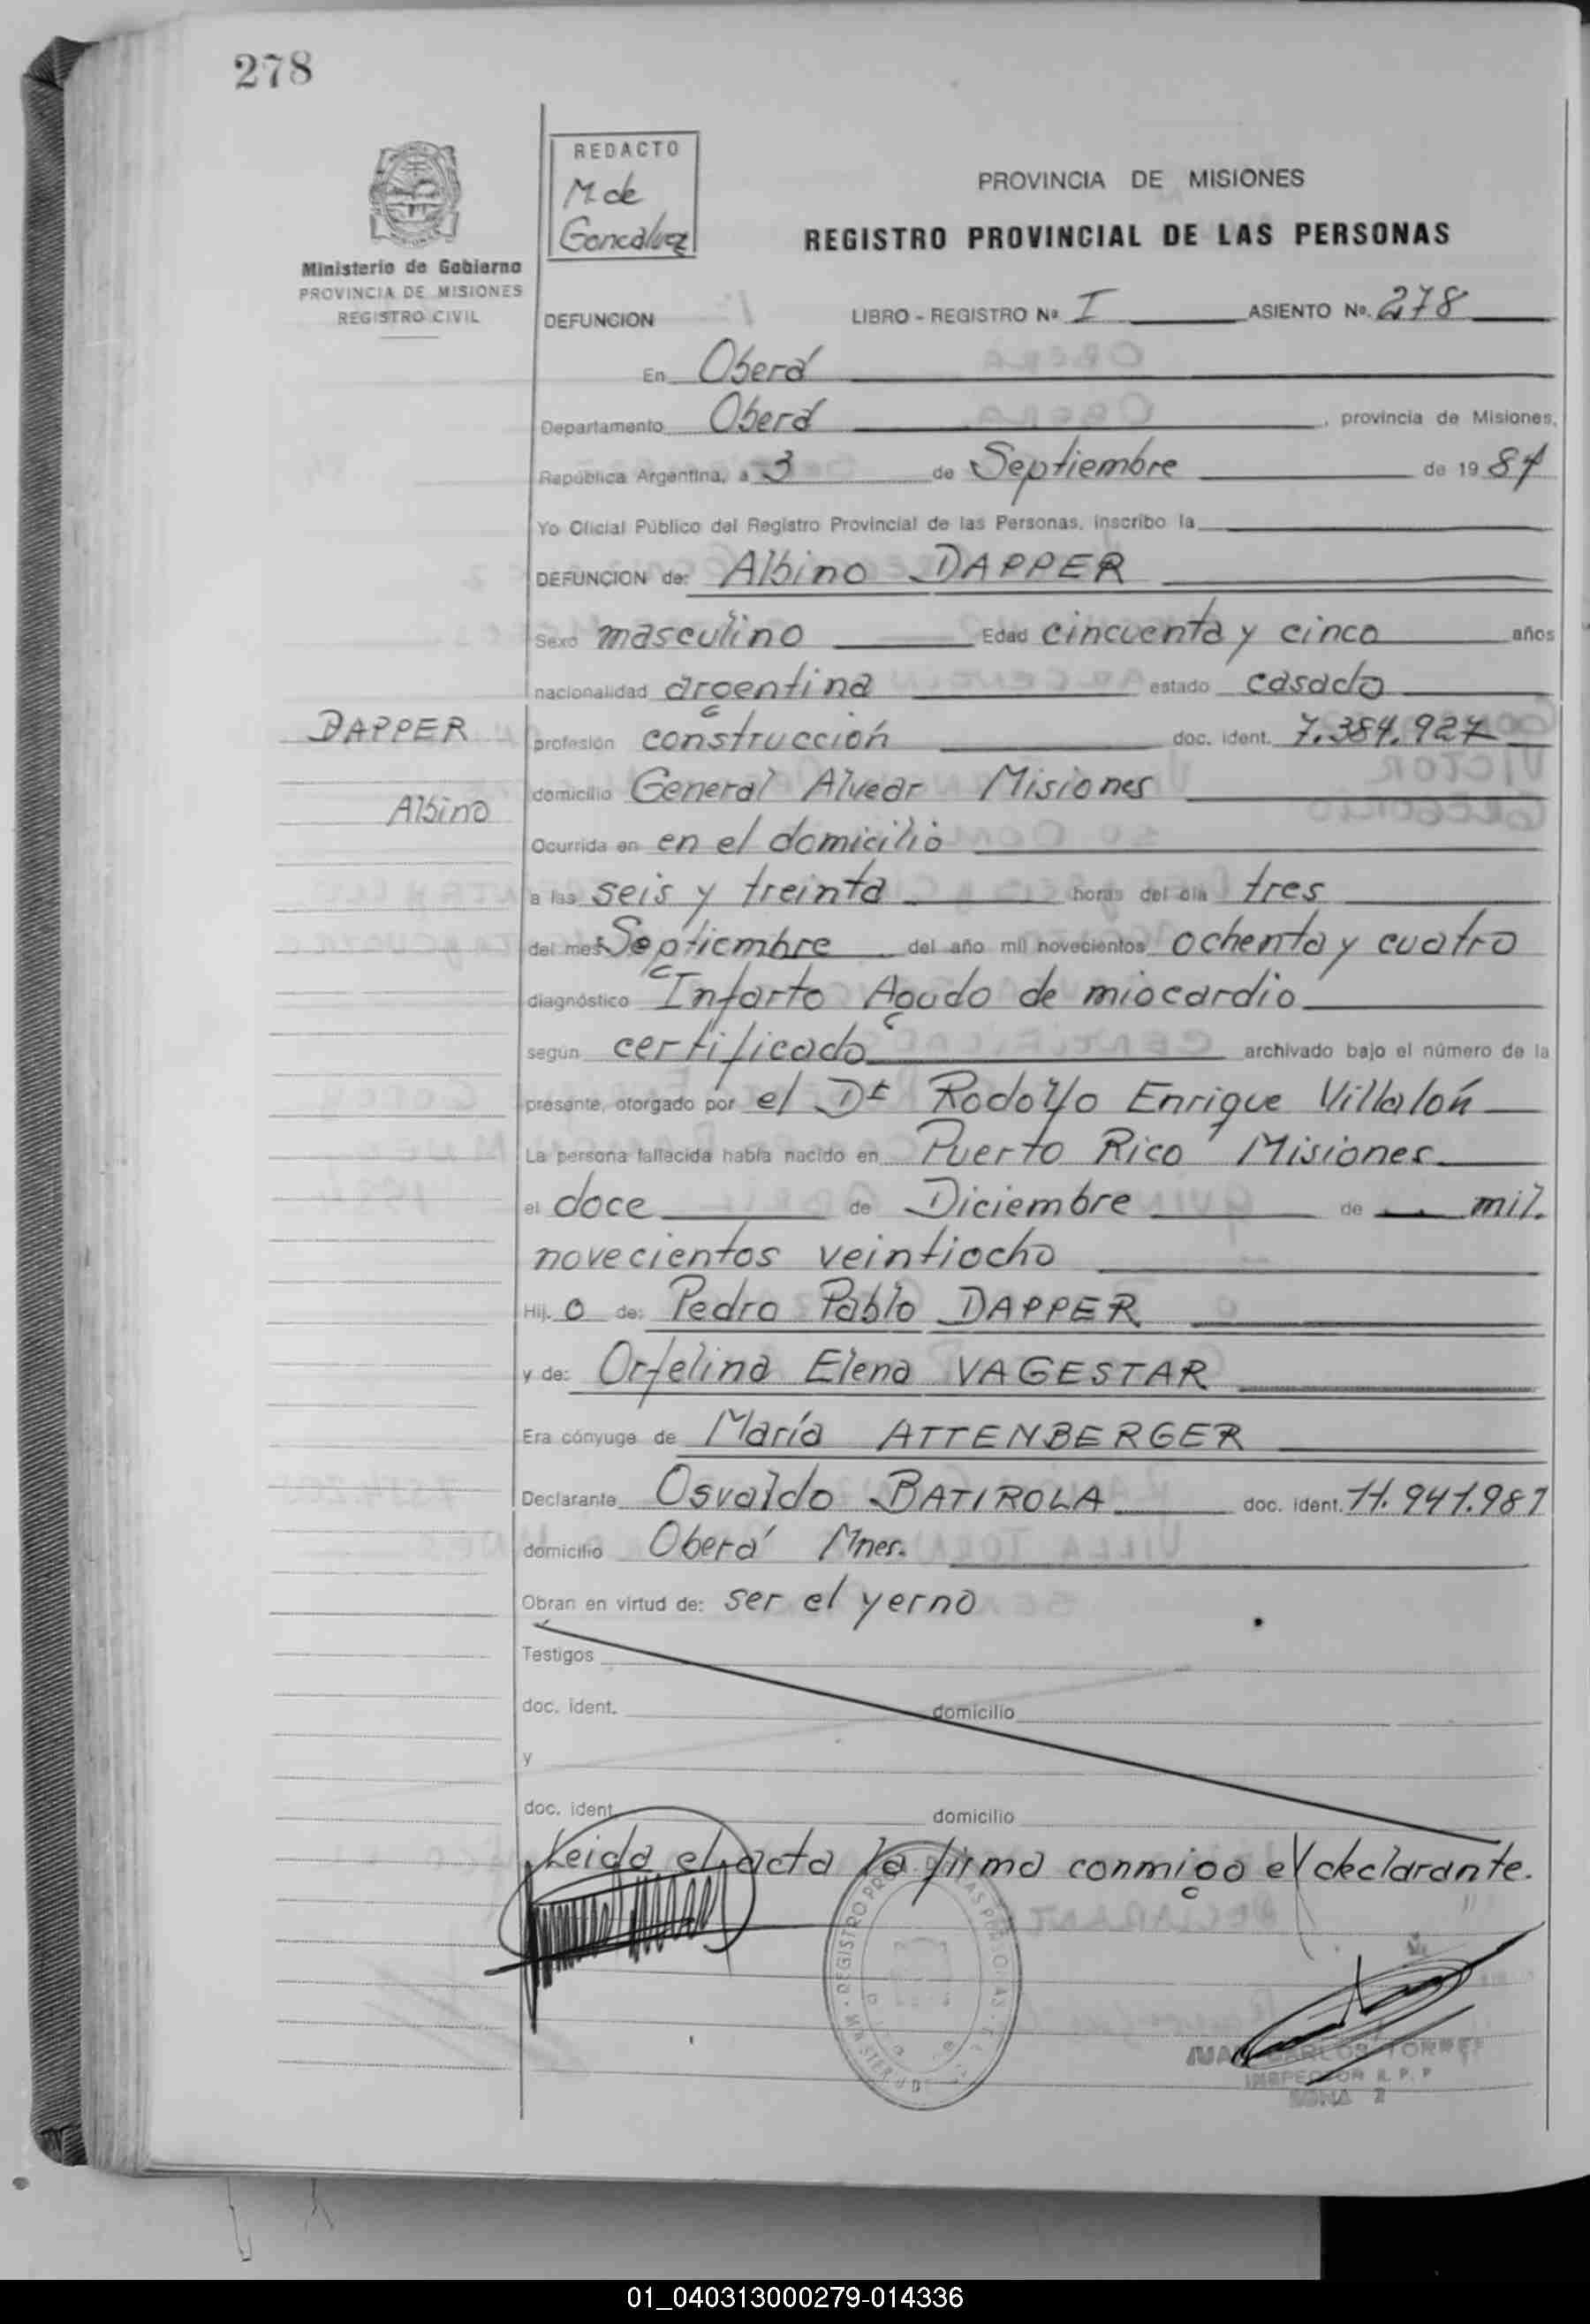 278
REDACTO
M. de
Goncalvez
Ministerio de Gobierno
PROVINCIA DE MISIONES
REGISTRO CIVIL
PROVINCIA DE MISIONES
REGISTRO PROVINCIAL DE LAS PERSONAS
DEFUNCION LIBRO - REGISTRO Nº I ASIENTO Nº. 278
En Oberá
Departamento Oberá, provincia de Misiones,
República Argentina, a 3 de Septiembre de 19 84
Yo Oficial Público del Registro Provincial de las Personas, inscribo la
DEFUNCION de: Albino DAPPER
Sexo masculino Edad cincuenta y cinco años
nacionalidad argentina estado casado
DAPPER
Albino
profesión construcción doc. ident. 7.384.927
domicilio General Alvear Misiones
Ocurrida en en el domicilio
a las seis y treinta horas del día tres
del mes Septiembre del año mil novecientos ochenta y cuatro
diagnóstico Infarto Agudo de miocardio
según certificado archivado bajo el número de la
presente, otorgado por el Dr Rodolfo Enrique Villalón
La persona fallecida había nacido en Puerto Rico Misiones
el doce de Diciembre de mil
novecientos veintiocho
Hij. o de: Pedro Pablo DAPPER
y de: Orfelina Elena VAGESTAR
Era cónyuge de María ATTENBERGER
Declarante Osvaldo BATIROLA doc. ident. 11.941.981
domicilio Oberá Mnes.
Obran en virtud de: ser el yerno
Testigos
doc. ident. domicilio
y
doc. ident. domicilio
Leida el acta la firma conmigo el declarante.
REGISTRO LAS PERSONAS
JUAN CARLOS TORRES
INSPECTOR R. P. P
ZONA 2
01_040313000279-014336